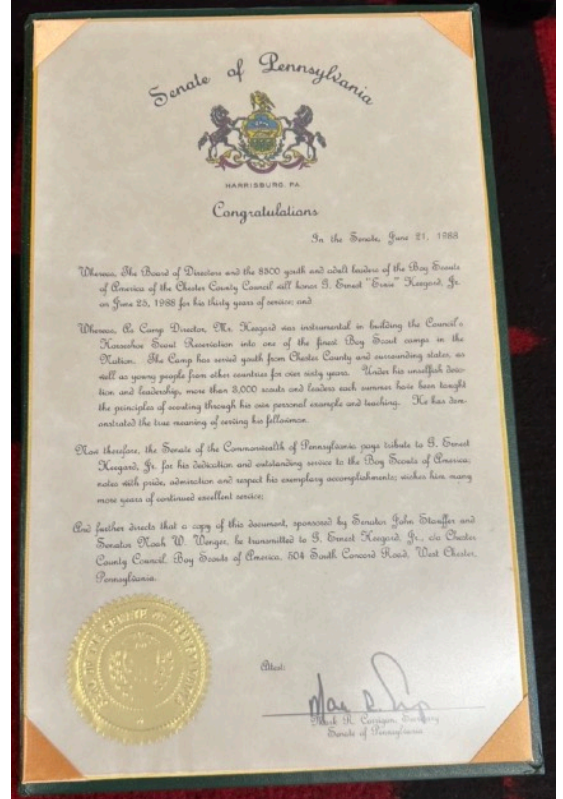 Senate of Pennsylvania
HARRISBURG, PA
Congratulations
In the Senate, June 21, 1988
Whereas, The Board of Directors and the 8300 youth and adult leaders of the Boy Scouts
of America of the Chester County Council will honor G. Ernest "Ernie" Heegard, Jr.
on June 25, 1988 for his thirty years of service; and
Whereas, As Camp Director, Mr. Heegard was instrumental in building the Council's
Horseshoe Scout Reservation into one of the finest Boy Scout camps in the
Nation. The Camp has served youth from Chester County and surrounding states, as
well as young people from other countries for over sixty years. Under his unselfish devo-
tion and leadership, more than 3,000 scouts and leaders each summer have been taught
the principles of scouting through his own personal example and teaching. He has dem-
onstrated the true meaning of serving his fellowman.
Now therefore, the Senate of the Commonwealth of Pennsylvania pays tribute to G. Ernest
Heegard, Jr. for his dedication and outstanding service to the Boy Scouts of America;
notes with pride, admiration and respect his exemplary accomplishments; wishes him many
more years of continued excellent service;
And further directs that a copy of this document, sponsored by Senator John Stauffer and
Senator Noah W. Wenger, be transmitted to G. Ernest Heegard, Jr., c/o Chester
County Council, Boy Scouts of America, 504 South Concord Road, West Chester,
Pennsylvania.
SENATE OF PENNSYLVANIA
Attest:
Mark R. Corrigan, Secretary
Senate of Pennsylvania